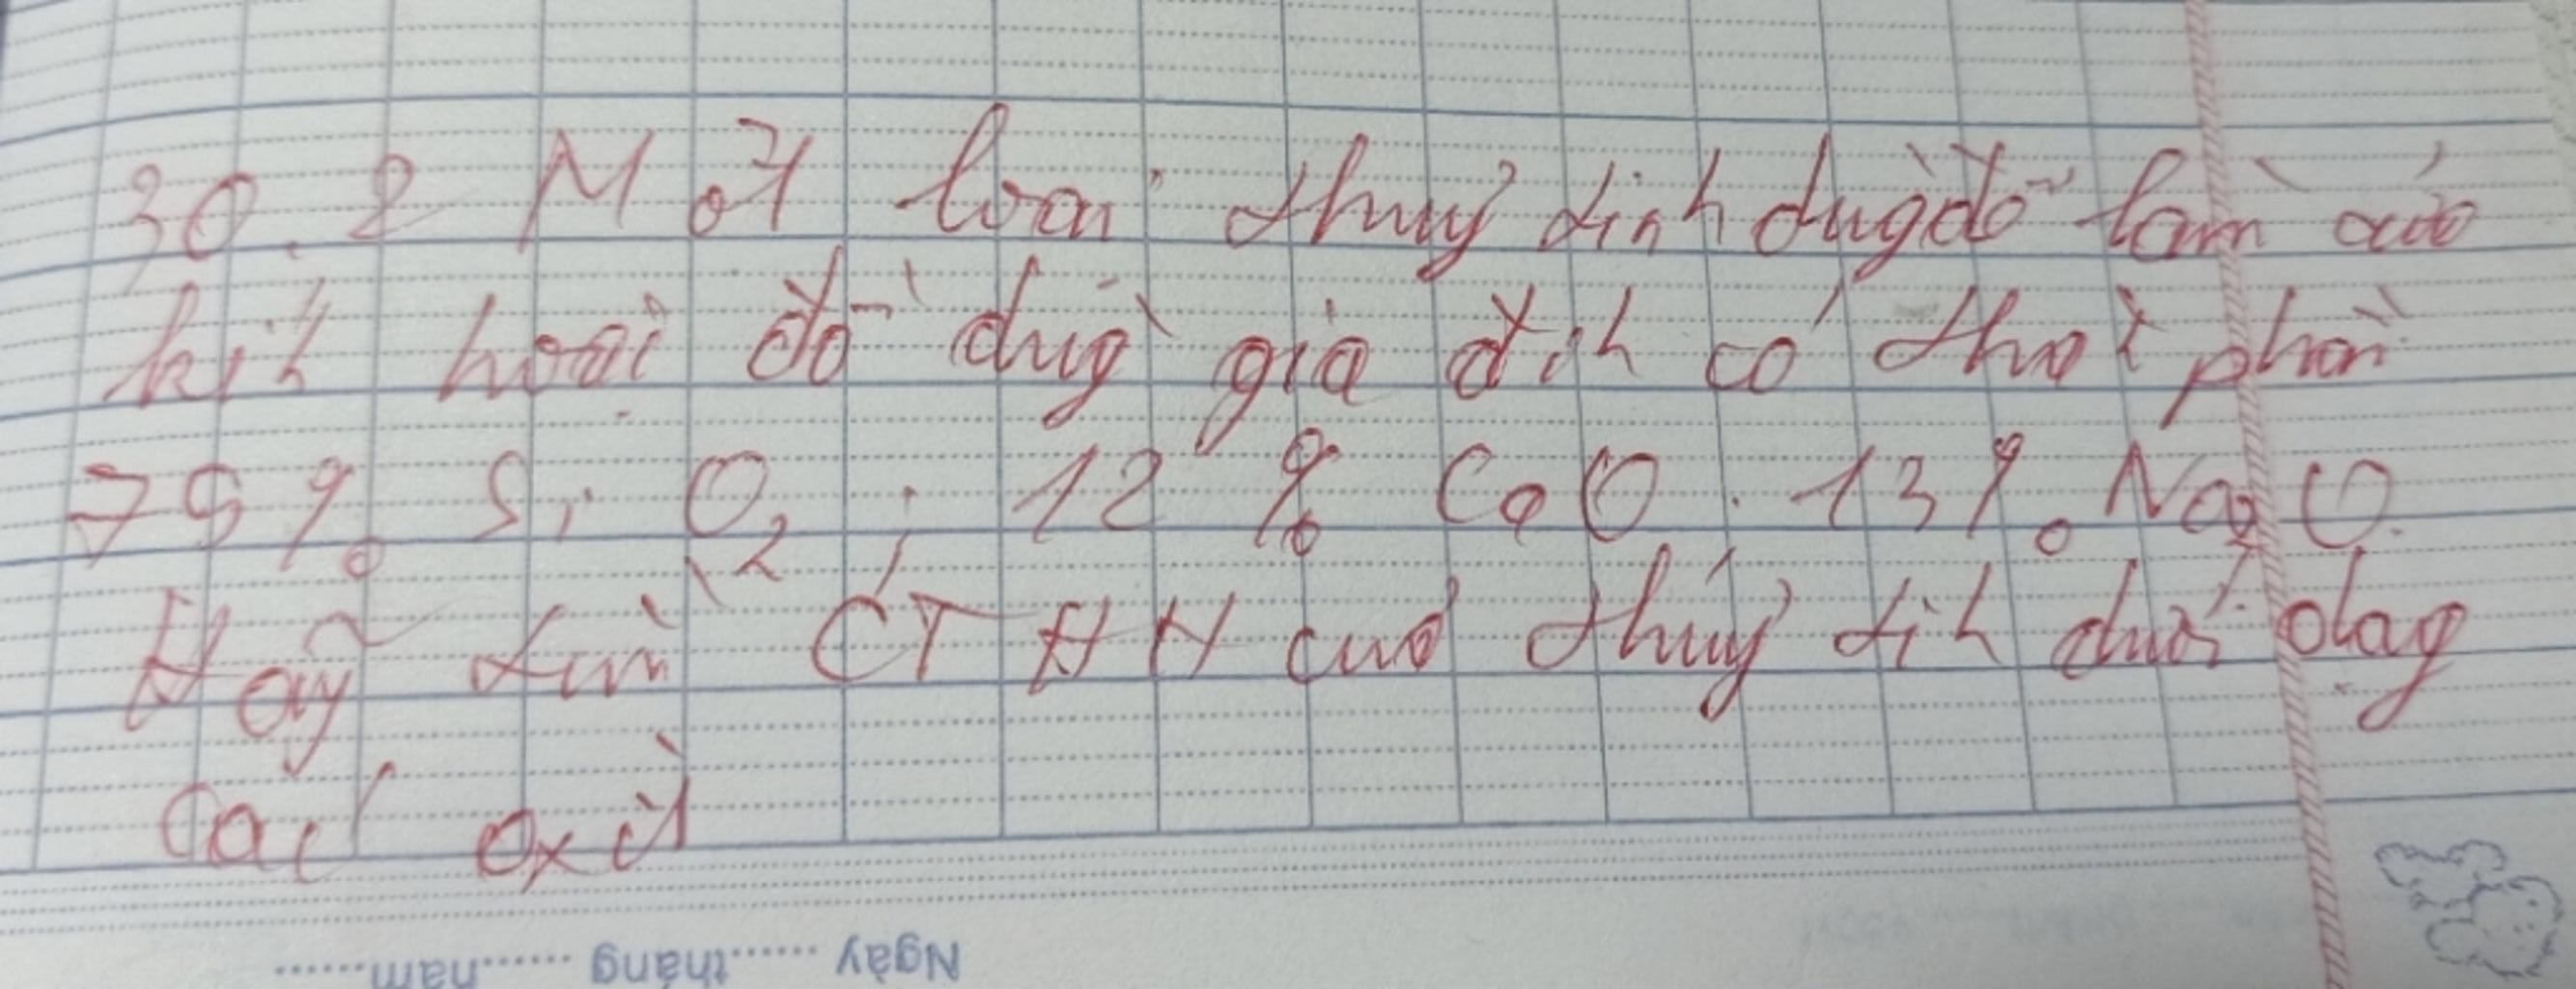 30.2 Một loại thuỷ tinh dùg để làm cửa
kíh hoặc đồ dùg gia đìh có thàh phần
75% SiO2; 12% CaO. 13% Na2O.
Hãy tìm CTHH của thủy tih dưới dạg
các oxit
Ngày ......tháng ......năm......